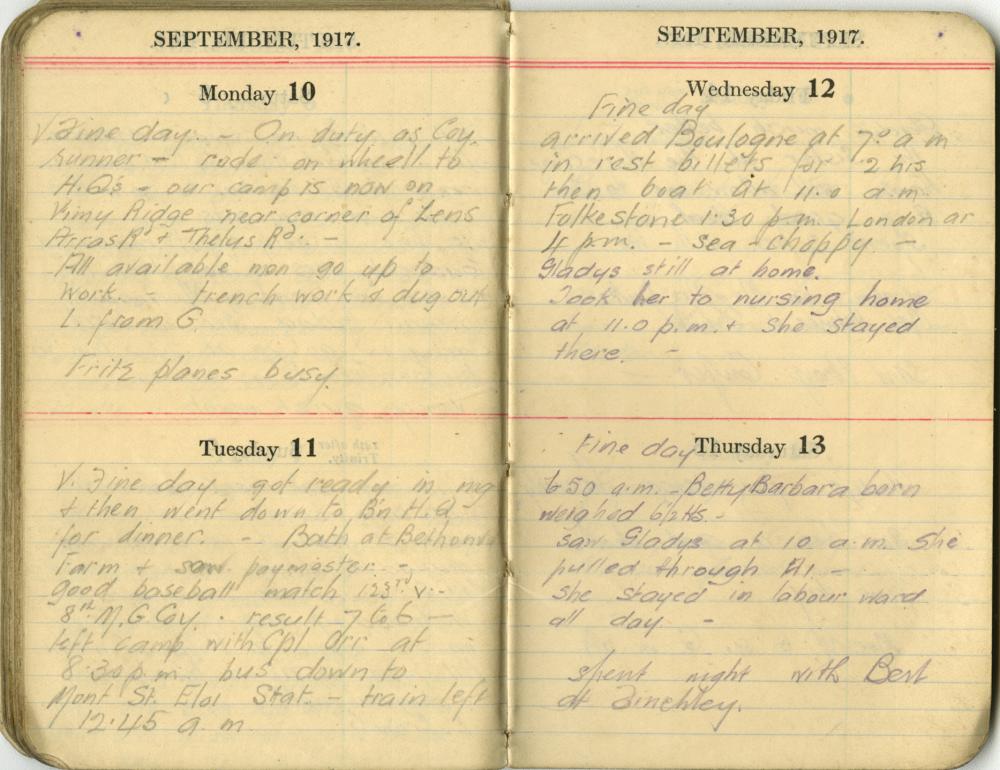 SEPTEMBER, 1917.
Monday 10
V. Fine day. - On duty as Coy.
runner - rode on wheell to
H.Q's - our camp is now on
Vimy Ridge near corner of Lens
Arras Rd & Thelus Rd. -
All available men go up to
work. - trench work & dug out
L. from G.
Fritz planes busy.
Tuesday 11
V. Fine day got ready in mg
& then went down to Bn H.Q -
for dinner. - Bath at Bethonv
Farm & saw paymaster -
good baseball match 123rd v.-
8th M.G Coy. · result 7 to 6 -
left camp with Cpl Orr at
8.30 p.m. bus down to
Mont St. Eloi Stat. - train left
12.45 a.m.
SEPTEMBER, 1917.
Wednesday 12
Fine day
arrived Boulogne at 7.0 a m
in rest billets for 2 hrs
then boat at 11.0 a.m
Folkestone 1.30 p.m. London ar
4 p.m. - sea - choppy -
Gladys still at home.
Took her to nursing home
at 11.0 p.m. & she stayed
there. -
Thursday 13
Fine day
6 50 a.m. - Betty Barbara born
weighed 6½ lbs. -
saw Gladys at 10 a.m. She
pulled through A1. -
She stayed in labour ward
all day -
spent night with Bert
at Finchley.